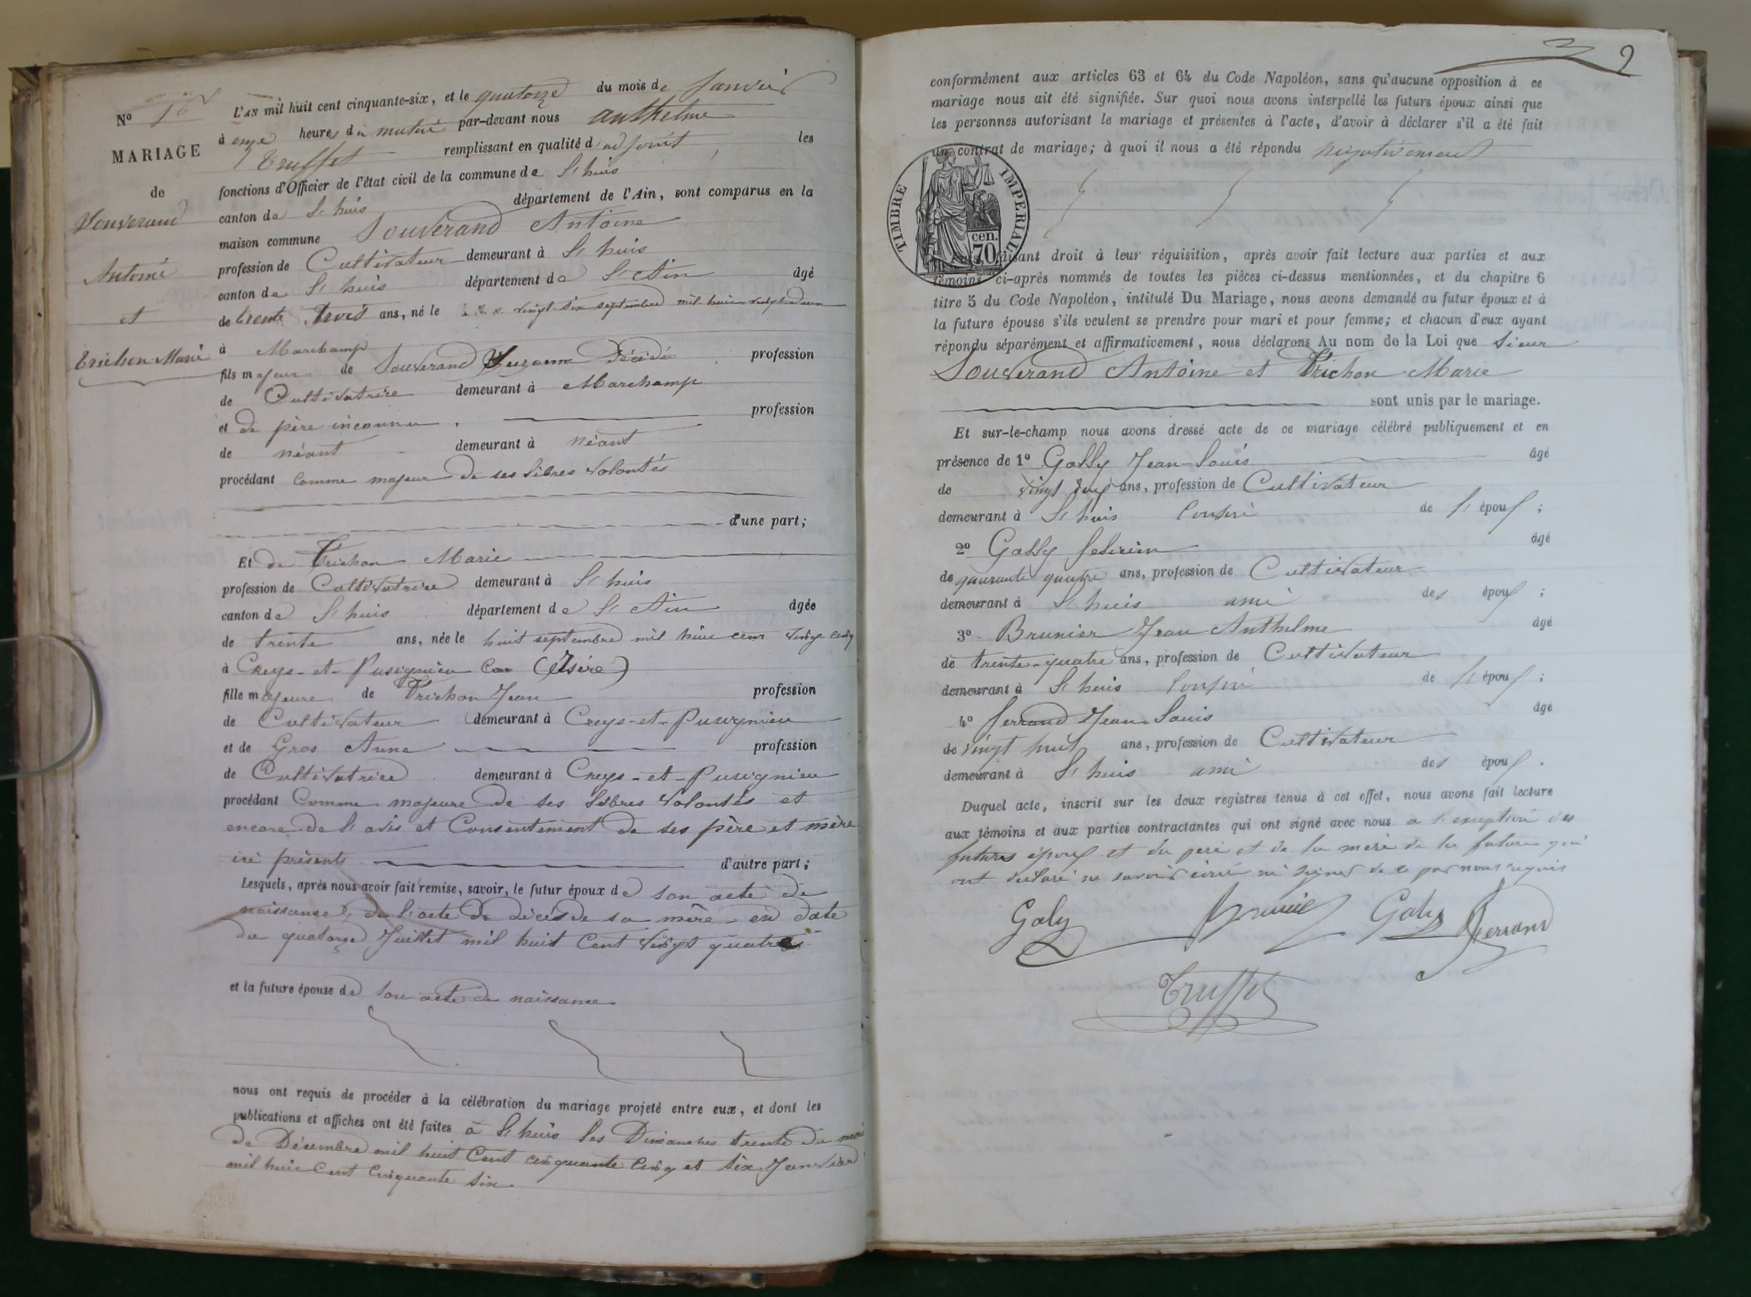 N° 1er
MARIAGE
de
Souverand
Antoine
et
Trichon Marie
L'AN mil huit cent cinquante-six, et le quatorze du mois de Janvier
à onze heures du matin par-devant nous Anthelme
Truffet remplissant en qualité d'adjoint les
fonctions d'Officier de l'état civil de la commune de Lhuis
canton de Lhuis département de l'Ain, sont comparus en la
maison commune Souverand Antoine
profession de Cultivateur demeurant à Lhuis
canton de Lhuis département de L'Ain âgé
de trente trois ans, né le vingt six septembre mil huit vingt deux
à Marchamp
fils majeur de Souverand Suzanne Décédée profession
de Cultivatrice demeurant à Marchamp
et de père inconnu profession
de néant demeurant à néant
procédant comme majeur de ses libres volontés
d'une part;
Et de Trichon Marie
profession de Cultivatrice demeurant à Lhuis
canton de Lhuis département de L'Ain âgée
de trente ans, née le huit septembre mil huit cent vingt cinq
à Creys-et-Pusignieu (Isère)
fille majeure de Trichon Jean profession
de Cultivateur demeurant à Creys-et-Pusignieu
et de Gros Anne profession
de Cultivatrice demeurant à Creys-et-Pusignieu
procédant Comme majeure de ses libres volontés et
encore de l'avis et Consentement de ses père et mère
ici présents d'autre part;
Lesquels, après nous avoir fait remise, savoir, le futur époux de son acte de
naissance, de l'acte de décès de sa mère en date
du quatorze Juillet mil huit Cent vingt quatre
et la future épouse de son acte de naissance
nous ont requis de procéder à la célébration du mariage projeté entre eux, et dont les
publications et affiches ont été faites à Lhuis les Dimanches trente du mois
de Décembre mil huit Cent cinquante cinq et six Janvier
mil huit Cent Cinquante six.
9
conformément aux articles 63 et 64 du Code Napoléon, sans qu'aucune opposition à ce
mariage nous ait été signifiée. Sur quoi nous avons interpellé les futurs époux ainsi que
les personnes autorisant le mariage et présentes à l'acte, d'avoir à déclarer s'il a été fait
un contrat de mariage; à quoi il nous a été répondu négativement
TIMBRE IMPERIAL
70 cen.
faisant droit à leur réquisition, après avoir fait lecture aux parties et aux
témoins ci-après nommés de toutes les pièces ci-dessus mentionnées, et du chapitre 6
titre 5 du Code Napoléon, intitulé Du Mariage, nous avons demandé au futur époux et à
la future épouse s'ils veulent se prendre pour mari et pour femme; et chacun d'eux ayant
répondu séparément et affirmativement, nous déclarons Au nom de la Loi que Sieur
Souverand Antoine et Trichon Marie
sont unis par le mariage.
Et sur-le-champ nous avons dressé acte de ce mariage célébré publiquement et en
présence de 1° Gally Jean Louis âgé
de vingt neuf ans, profession de Cultivateur
demeurant à Lhuis de l'époux;
2° Gally âgé
de quarante quatre ans, profession de Cultivateur
demeurant à Lhuis ami des époux;
3° Brunier Jean Anthelme âgé
de trente-quatre ans, profession de Cultivateur
demeurant à Lhuis de l'époux;
4° Ferrand Jean Louis âgé
de vingt huit ans, profession de Cultivateur
demeurant à Lhuis ami des époux.
Duquel acte, inscrit sur les deux registres tenus à cet effet, nous avons fait lecture
aux témoins et aux parties contractantes qui ont signé avec nous à l'exception des
futurs époux et du père et de la mère de la future qui
ont déclaré ne savoir écrire ni signer de ce par nous requis
Galy Brunier Galy Ferrand
Truffet